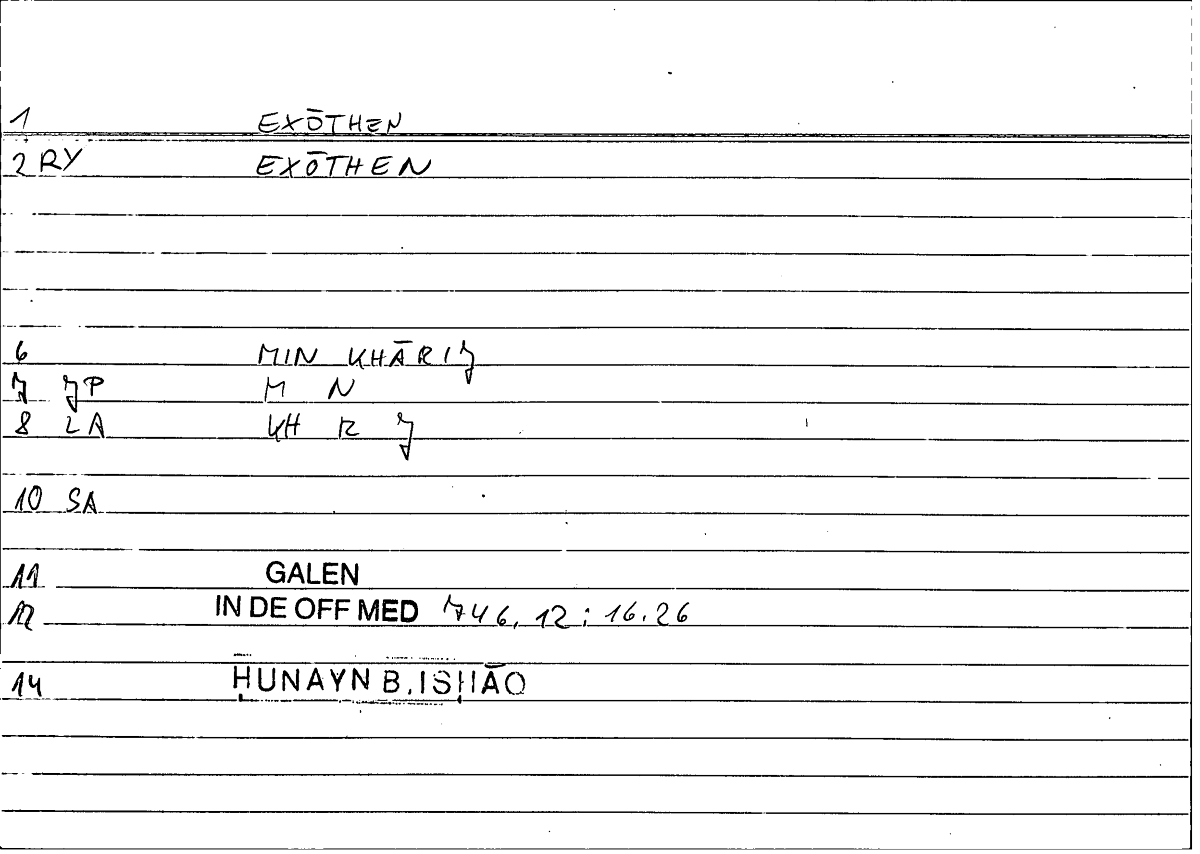 1 EXŌTHEN
2 RY EXŌTHEN
6 MIN KHĀRIJ
7 JP M N
8 LA KH R J
10 SA
11 GALEN
12 IN DE OFF MED 746, 12 ; 16.26
14 ḤUNAYN B. ISḤĀQ